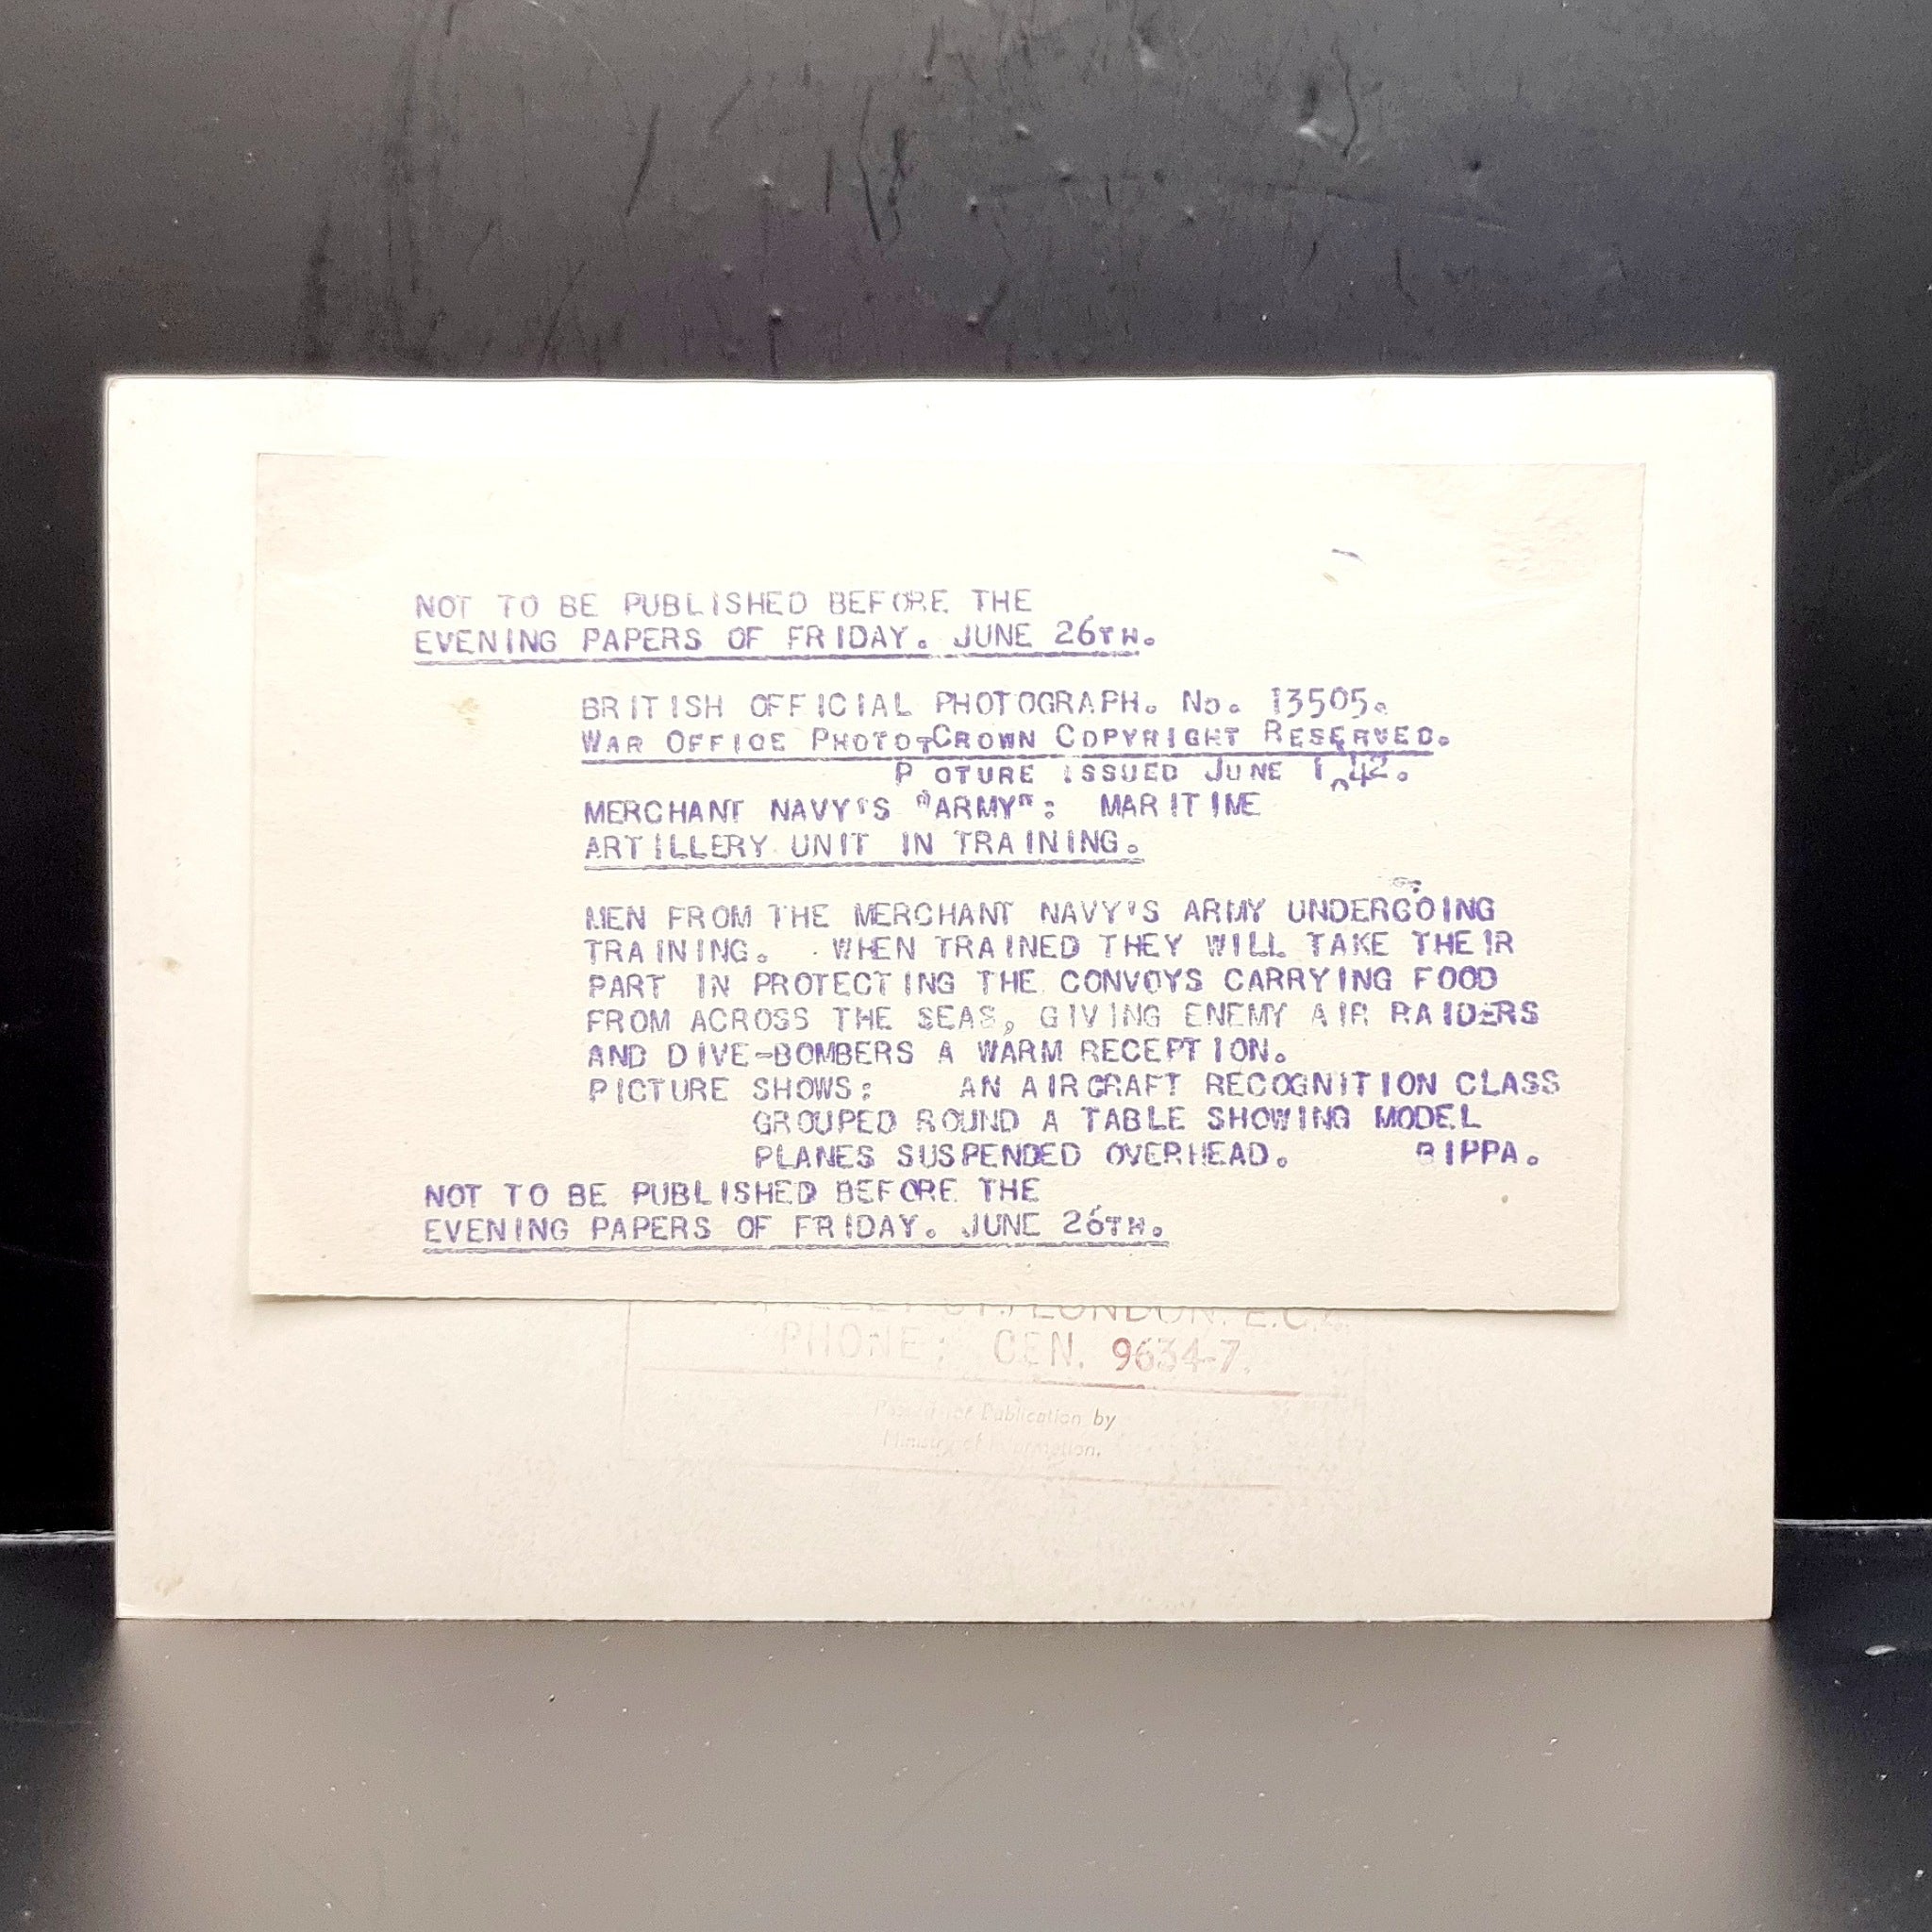 NOT TO BE PUBLISHED BEFORE THE
EVENING PAPERS OF FRIDAY. JUNE 26TH.
BRITISH OFFICIAL PHOTOGRAPH. No. 13505.
WAR OFFICE PHOTO: CROWN COPYRIGHT RESERVED.
ISSUED JUNE 42.
MERCHANT NAVY'S "ARMY": MARITIME
ARTILLERY UNIT IN TRAINING.
MEN FROM THE MERCHANT NAVY'S ARMY UNDERGOING
TRAINING. WHEN TRAINED THEY WILL TAKE THEIR
PART IN PROTECTING THE CONVOYS CARRYING FOOD
FROM ACROSS THE SEAS, GIVING ENEMY AIR RAIDERS
AND DIVE-BOMBERS A WARM RECEPTION.
PICTURE SHOWS: AN AIRCRAFT RECOGNITION CLASS
GROUPED ROUND A TABLE SHOWING MODEL
PLANES SUSPENDED OVERHEAD. BIPPA.
NOT TO BE PUBLISHED BEFORE THE
EVENING PAPERS OF FRIDAY. JUNE 26TH.
LONDON. E.C.
PHONE: CEN. 9634-7.
Publication by
Ministry of Information.